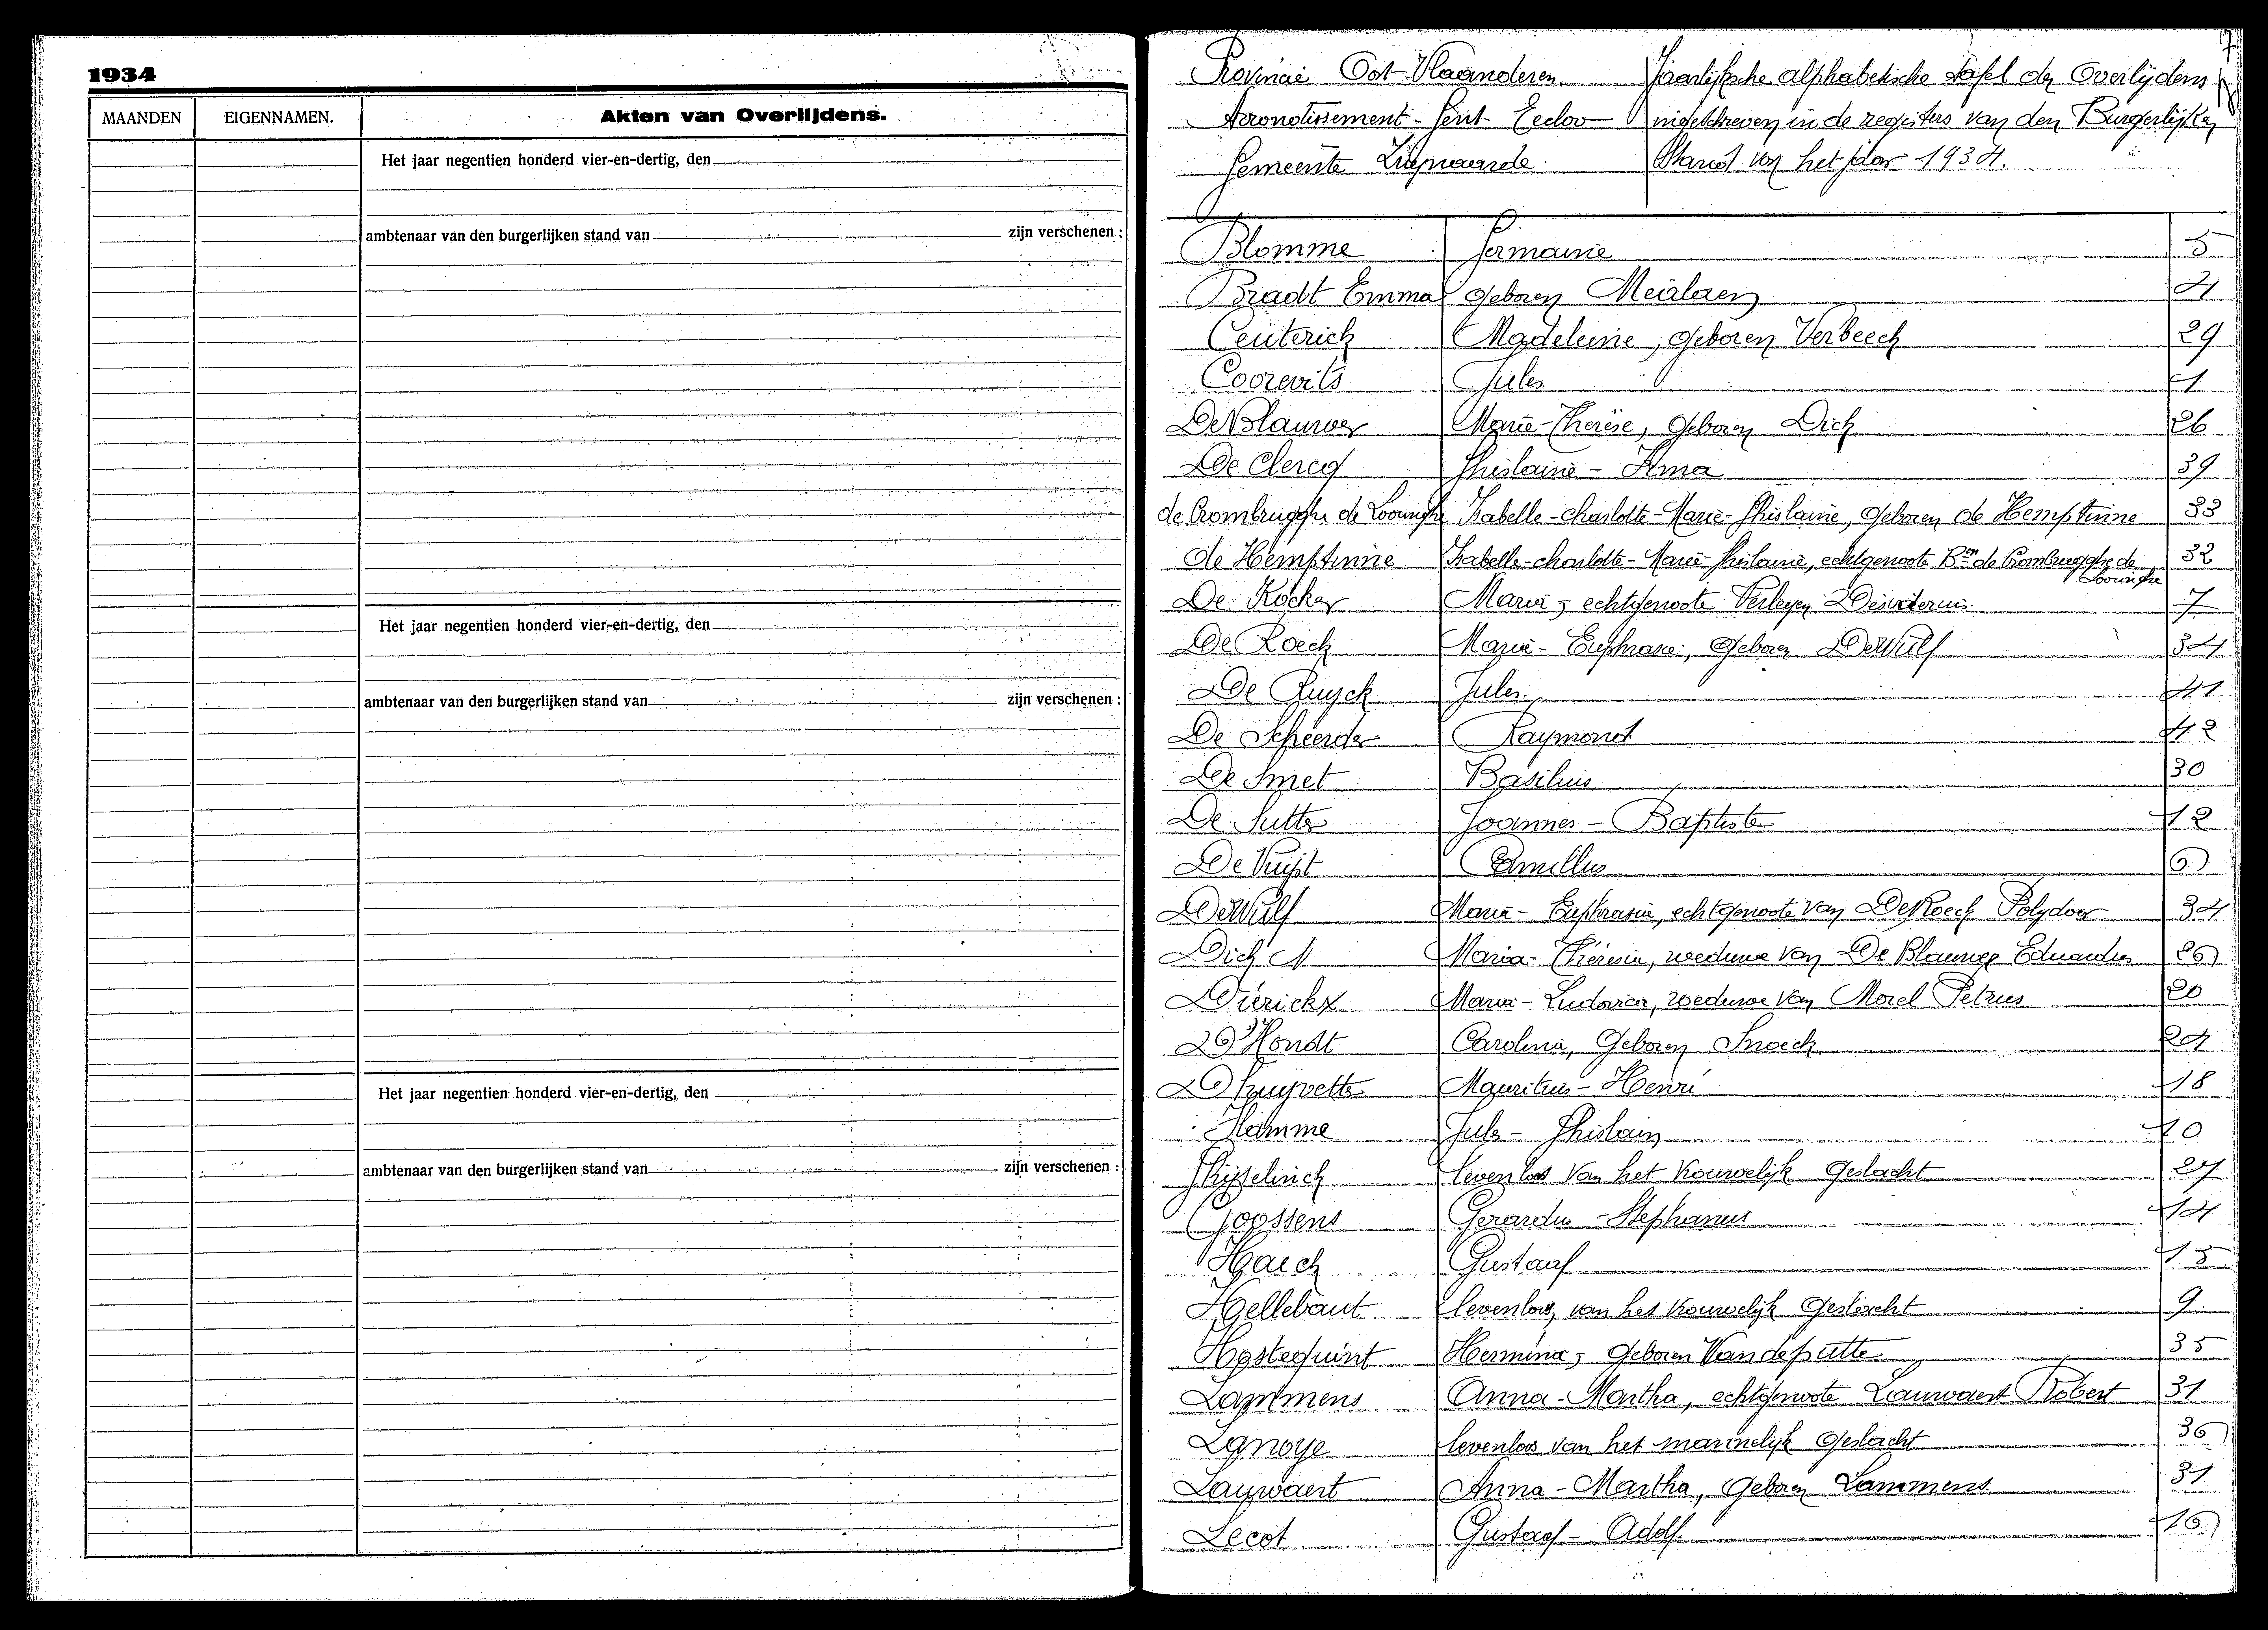 1934
MAANDEN EIGENNAMEN. Akten van Overlijdens.
Het jaar negentien honderd vier-en-dertig, den
ambtenaar van den burgerlijken stand van zijn verschenen :
Het jaar negentien honderd vier-en-dertig, den
ambtenaar van den burgerlijken stand van zijn verschenen :
Het jaar negentien honderd vier-en-dertig, den
ambtenaar van den burgerlijken stand van zijn verschenen :
Provincie Oost-Vlaanderen
Arrondissement - Gent - Eecloo
Gemeente
Jaarlijksche alphabetische tafel der Overlijdens
ingeschreven in de registers van den Burgerlijken
Stand van het jaar 1934.
Blomme Germaine 5
Bradt Emma geboren Meirlaen 4
Ceuterick Madeleine, geboren Verbeeck 29
Coorevits Jules 1
De Blauwer Marie-Thérèse, geboren Dick 26
De Clercq Ghislaine - Irma 39
de Crombrugghe de Looringhe Isabelle-charlotte-Marie-Ghislaine, geboren de Hemptinne 33
de Hemptinne Isabelle-charlotte-Marie-Ghislaine, echtgenoote Bon de Crombrugghe de Looringhe 32
De Kocker Maria, echtgenoote Verleyen Desiderius 7
De Roeck Marie-Euphrasie, geboren DeWulf 34
De Ruyck Jules 41
De Scheerder Raymond 42
De Smet Basilius 30
De Sutter Joannes-Baptiste 12
De Vuyst Camillus 6
DeWulf Maria-Euphrasia, echtgenoote van DeRoeck Polydoor 34
Dick M Maria-Thérèsia, weduwe van De Blauwer Eduardus 26
Dierickx Maria-Ludovica, weduwe van Morel Petrus 20
D'Hondt Carolina, Geboren Snoeck 24
Druyvetter Mauritius-Henri 18
Hamme Jules-Ghislain 10
Ghyselinck levenloos van het vrouwelijk Geslacht 27
Goossens Gerardus-Stephanus 14
Haeck Gustaaf 15
Hellebaut levenloos, van het vrouwelijk Geslacht 9
Hostequint Hermina, geboren Vandeputte 35
Lammens Anna-Martha, echtgenoote Lauwaert Robert 31
Lanoye levenloos van het mannelijk Geslacht 36
Lauwaert Anna-Martha, Geboren Lammens 31
Lecot Gustaaf-Adolf 16